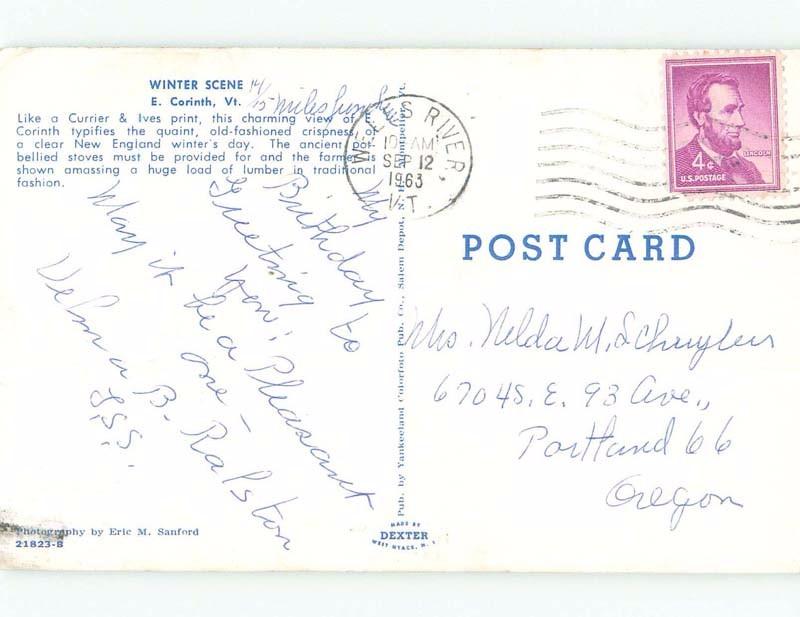 WINTER SCENE 14/15 miles from here
E. Corinth, Vt.
Like a Currier & Ives print, this charming view of E.
Corinth typifies the quaint, old-fashioned crispness of
a clear New England winter's day. The ancient pot-
bellied stoves must be provided for and the farmer is
shown amassing a huge load of lumber in traditional
fashion.
My
Birthday
Greeting to
you!
May it be a Pleasant
one –
Velma B. Ralston
S.S.S.
Photography by Eric M. Sanford
21823-B
Pub. by Yankeeland Colorfoto Pub. Co., Salem Depot, N. H., Montpelier, Vt.
MADE BY
DEXTER
WEST NYACK, N. Y.
WELLS RIVER
10 AM
SEP 12
1963
VT.
4¢
LINCOLN
U.S. POSTAGE
POST CARD
Mrs. Nelda M. Schuyler
6704 S.E. 93 Ave.,
Portland 66
Oregon